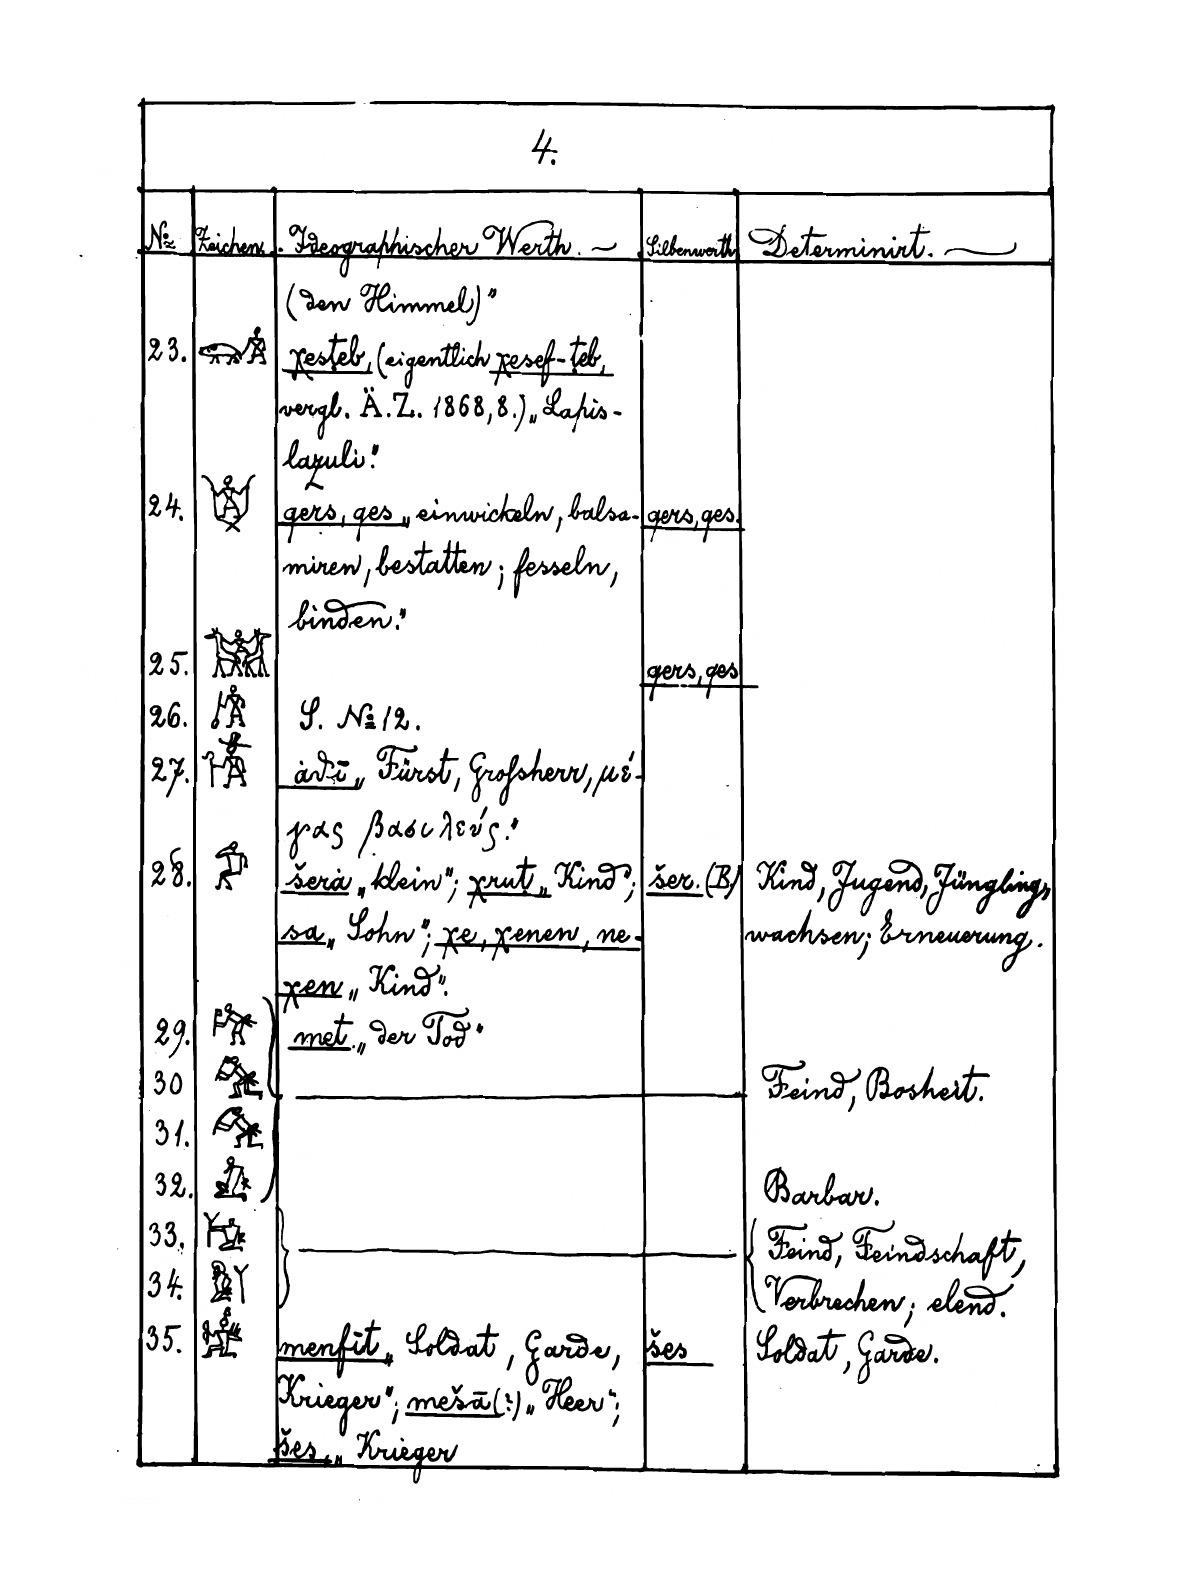 4.
№ Zeichen. Ideographischer Werth. Silbenwerth Determinirt.
(den Himmel)"
23. χesṭeb, (eigentlich χesef-ṭeb,
vergl. Ä.Z. 1868, 8.) „Lapis-
lazuli."
24. qers, qes „einwickeln, balsa- qers, qes.
miren, bestatten; fesseln,
binden."
25. qers, qes
26. S. № 12.
27. „Fürst, Grofsherr, μέ-
γας βασιλεύς."
28. šerȧ „klein"; χruṭ „Kind"; šer. (B.) Kind, Jugend, Jüngling,
sa „Sohn"; χe, χenen, ne- wachsen; Erneuerung.
χen „Kind".
29. met „der Tod"
30 Feind, Bosheit.
31.
32. Barbar.
33. Feind, Feindschaft,
34. Verbrechen; elend.
35. menfīt „Soldat, Garde, šes Soldat, Garde.
Krieger"; mešā (?) „Heer";
šes „Krieger